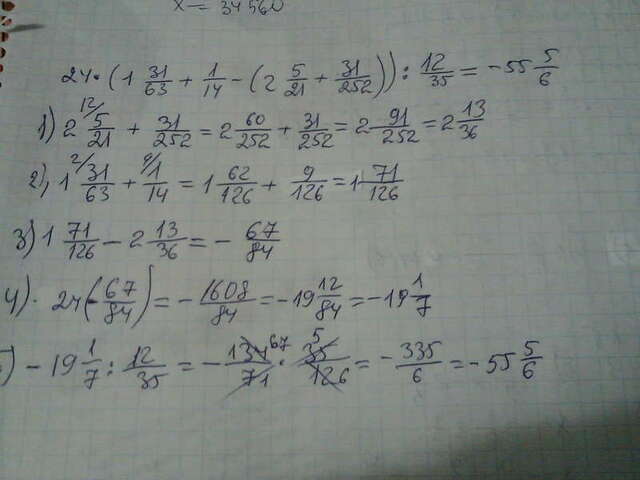 x = 34560
24·(1 31/63 + 1/14 − (2 5/21 + 31/252)) : 12/35 = −55 5/6
1) 2 12/ 5/21 + 31/252 = 2 60/252 + 31/252 = 2 91/252 = 2 13/36
2), 1 2/ 31/63 + 9/ 1/14 = 1 62/126 + 9/126 = 1 71/126
3) 1 71/126 − 2 13/36 = − 67/84
4)· 24(−67/84) = −1608/84 = −19 12/84 = −19 1/7
5) −19 1/7 : 12/35 = − 134 67/71 · 35 5/126 = −335/6 = −55 5/6